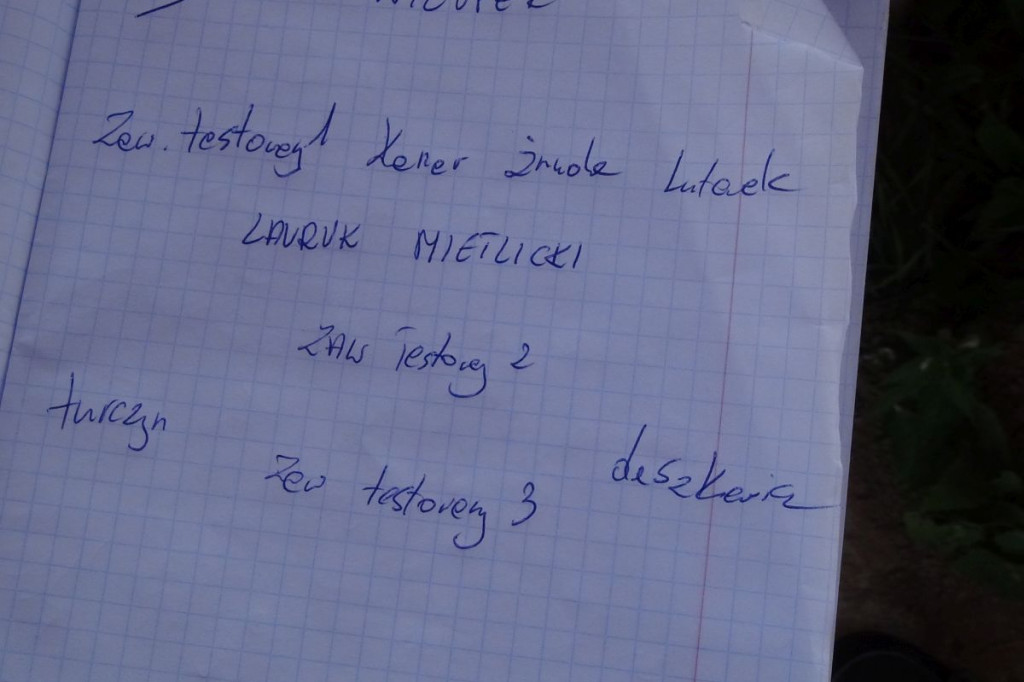 Zaw. testowy 1 Kaner żmuda Lutaek
ŁAWRUK MIETLICKI
ZAW Testowy 2
turczyn
Zaw testowy 3 daszkewicz